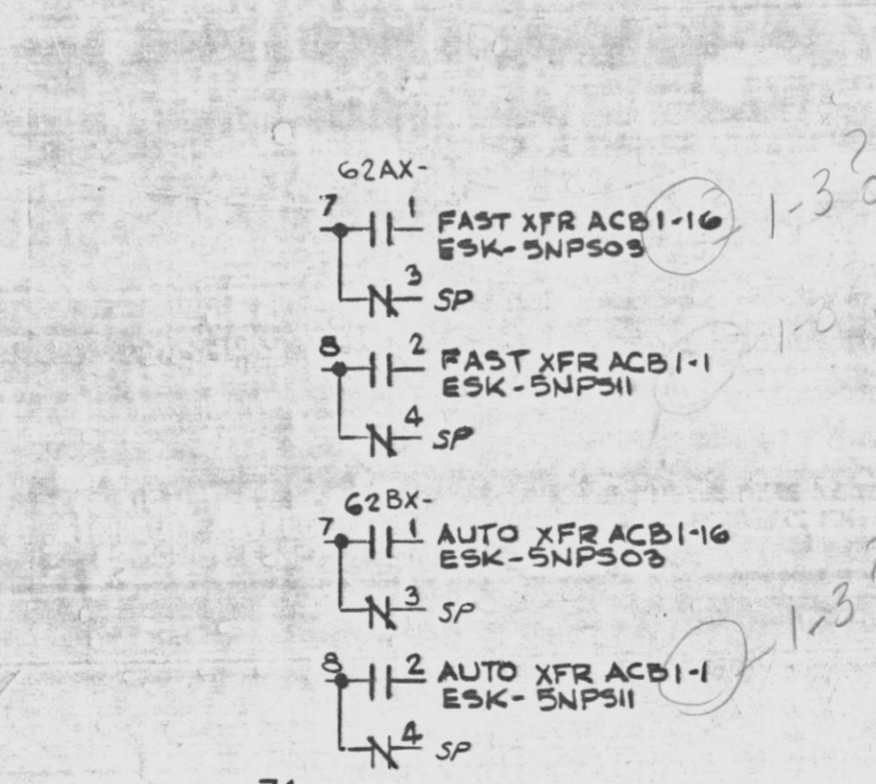 62AX-
7 1 FAST XFR ACB1-16 1-3?
ESK-5NPS03
3 SP
8 2 FAST XFR ACB1-1
ESK-5NPS11
4 SP
62BX-
7 1 AUTO XFR ACB1-16
ESK-5NPS03
3 SP
8 2 AUTO XFR ACB1-1 1-3?
ESK-5NPS11
4 SP